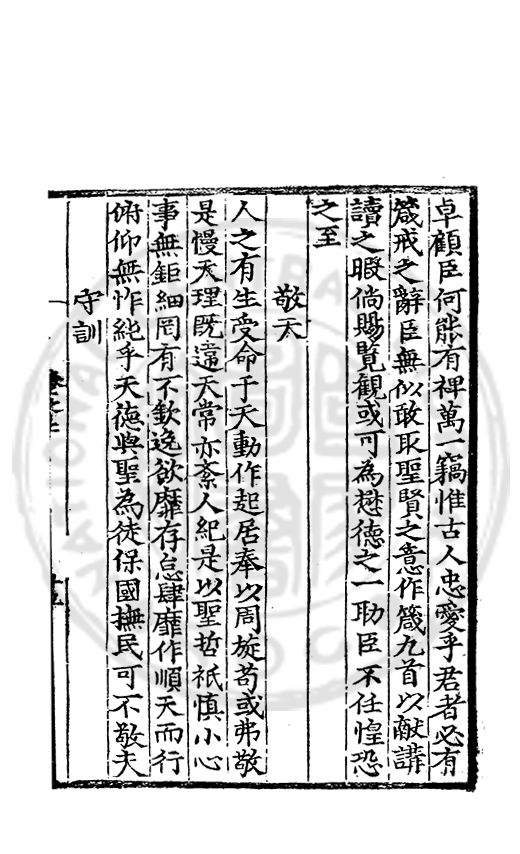 卓顧臣何能有裨萬一竊惟古人忠愛乎君者必有
箴戒之辭臣無似敢取聖賢之意作箴九首以獻講
讀之暇倘賜覧觀或可為懋德之一助臣不任惶恐
之至
敬天
人之有生受命于天動作起居奉以周旋苟或弗敬
是慢天理既違天常亦紊人紀是以聖哲祇慎小心
事無鉅細罔有不欽逸欲靡存怠肆靡作順天而行
俯仰無怍純乎天德與聖為徒保國撫民可不敬夫
守訓